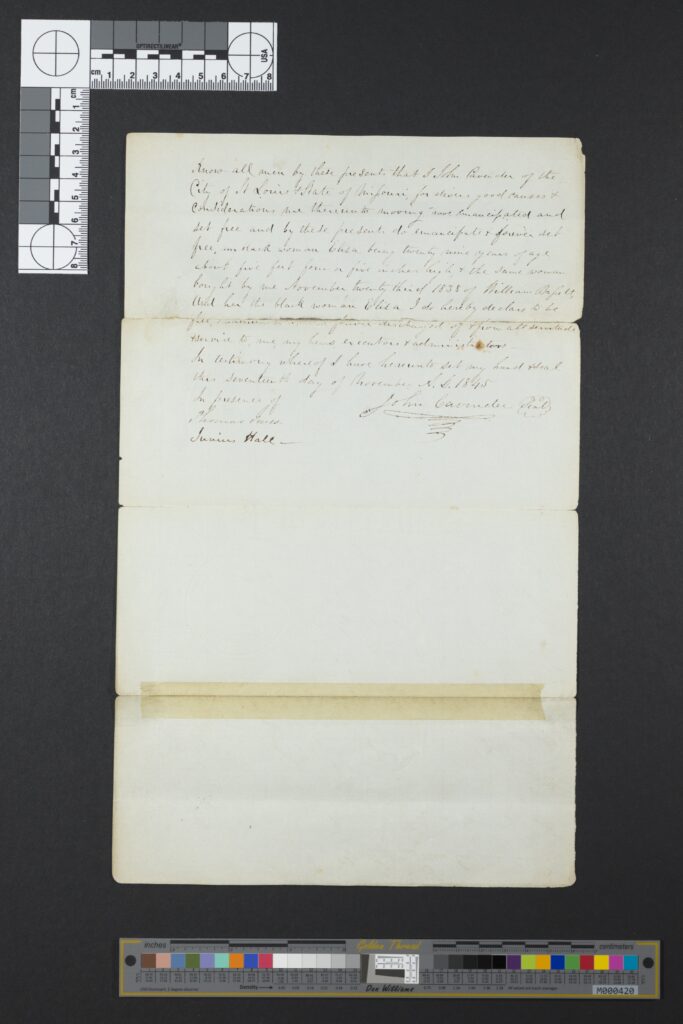 OPTIRECT LINEAR
USA
cm 1 2 3 4 5 6 7 8
1 2 3 4 5 6 7 8
Know all men by these presents that I John Cavender of the
City of St Louis & State of Missouri for divers good causes &
considerations me thereunto moving have emancipated and
set free and by these presents do emancipate & forever set
free, my black woman Eliza being twenty nine years of age
about five feet four or five inches high & the same woman
bought by me November twenty third of 1838 of William
And her the black woman Eliza I do hereby declare to be
free, forever discharged of & from all servitude
& service to me, my heirs executors & administrators
In testimony whereof I have hereunto set my hand & seal
this seventeenth day of November A.D. 1845
In presence of
John Cavender Seal
Thomas
Junius Hall
inches
Golden Thread
centimeters
Density
Don Williams
M000420